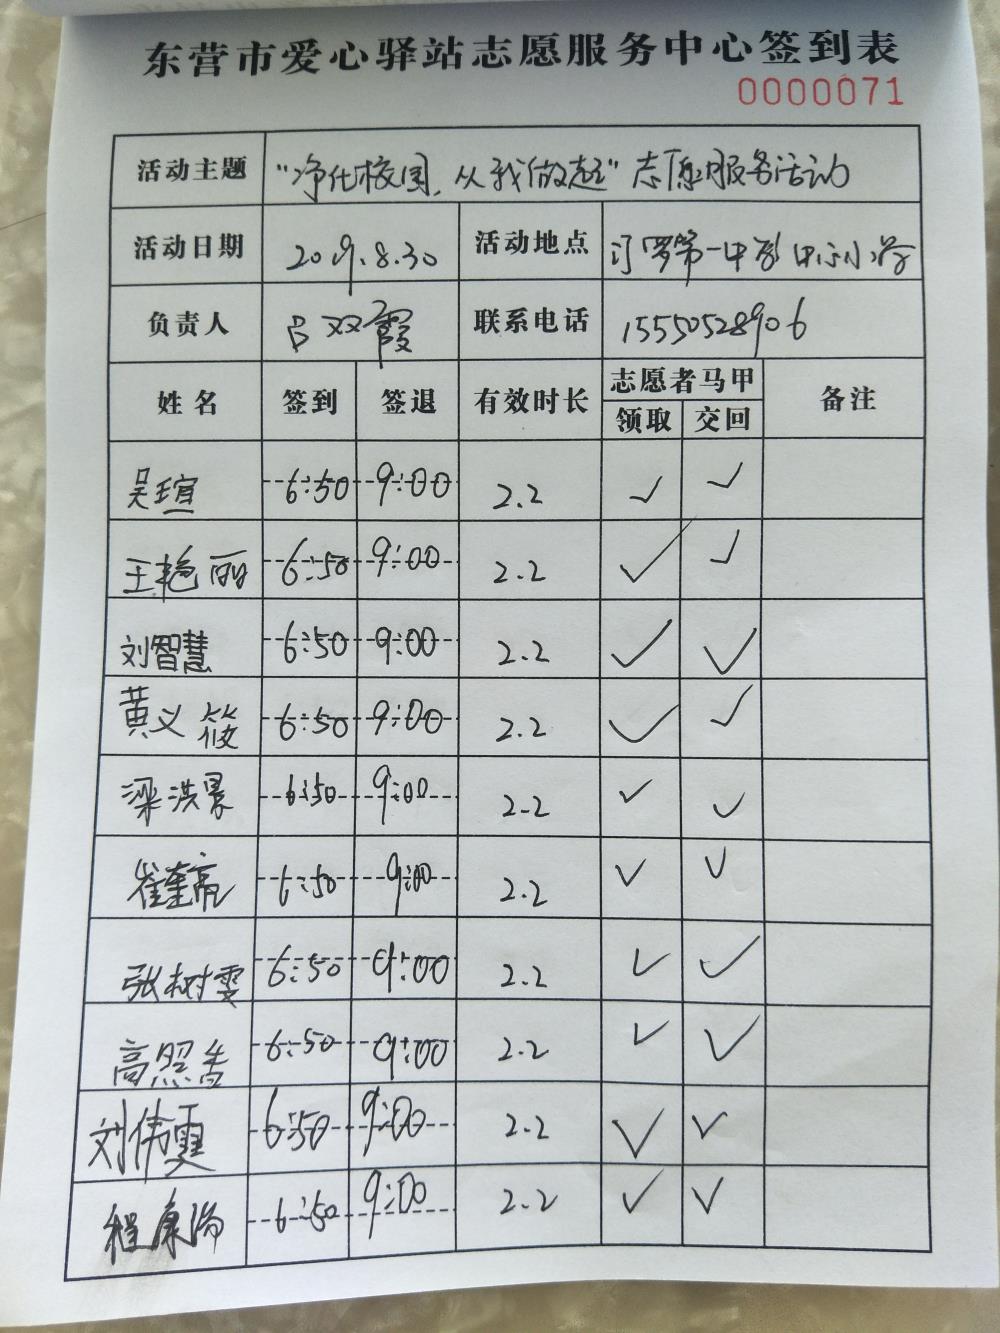 东营市爱心驿站志愿服务中心签到表
0000071
活动主题 “净化校园，从我做起”志愿服务活动
活动日期 2019.8.30 活动地点 汀罗第一中心小学
负责人 吕双霞 联系电话 15550528906
姓名 签到 签退 有效时长 志愿者马甲 备注
领取 交回
吴瑄 6:50 9:00 2.2 ✓ ✓
王艳丽 6:50 9:00 2.2 ✓ ✓
刘智慧 6:50 9:00 2.2 ✓ ✓
黄义筱 6:50 9:00 2.2 ✓ ✓
梁洪景 6:50 9:00 2.2 ✓ ✓
崔奎亮 6:50 9:00 2.2 ✓ ✓
张树雯 6:50 9:00 2.2 ✓ ✓
高照香 6:50 9:00 2.2 ✓ ✓
刘伟雯 6:50 9:00 2.2 ✓ ✓
程康 6:50 9:00 2.2 ✓ ✓